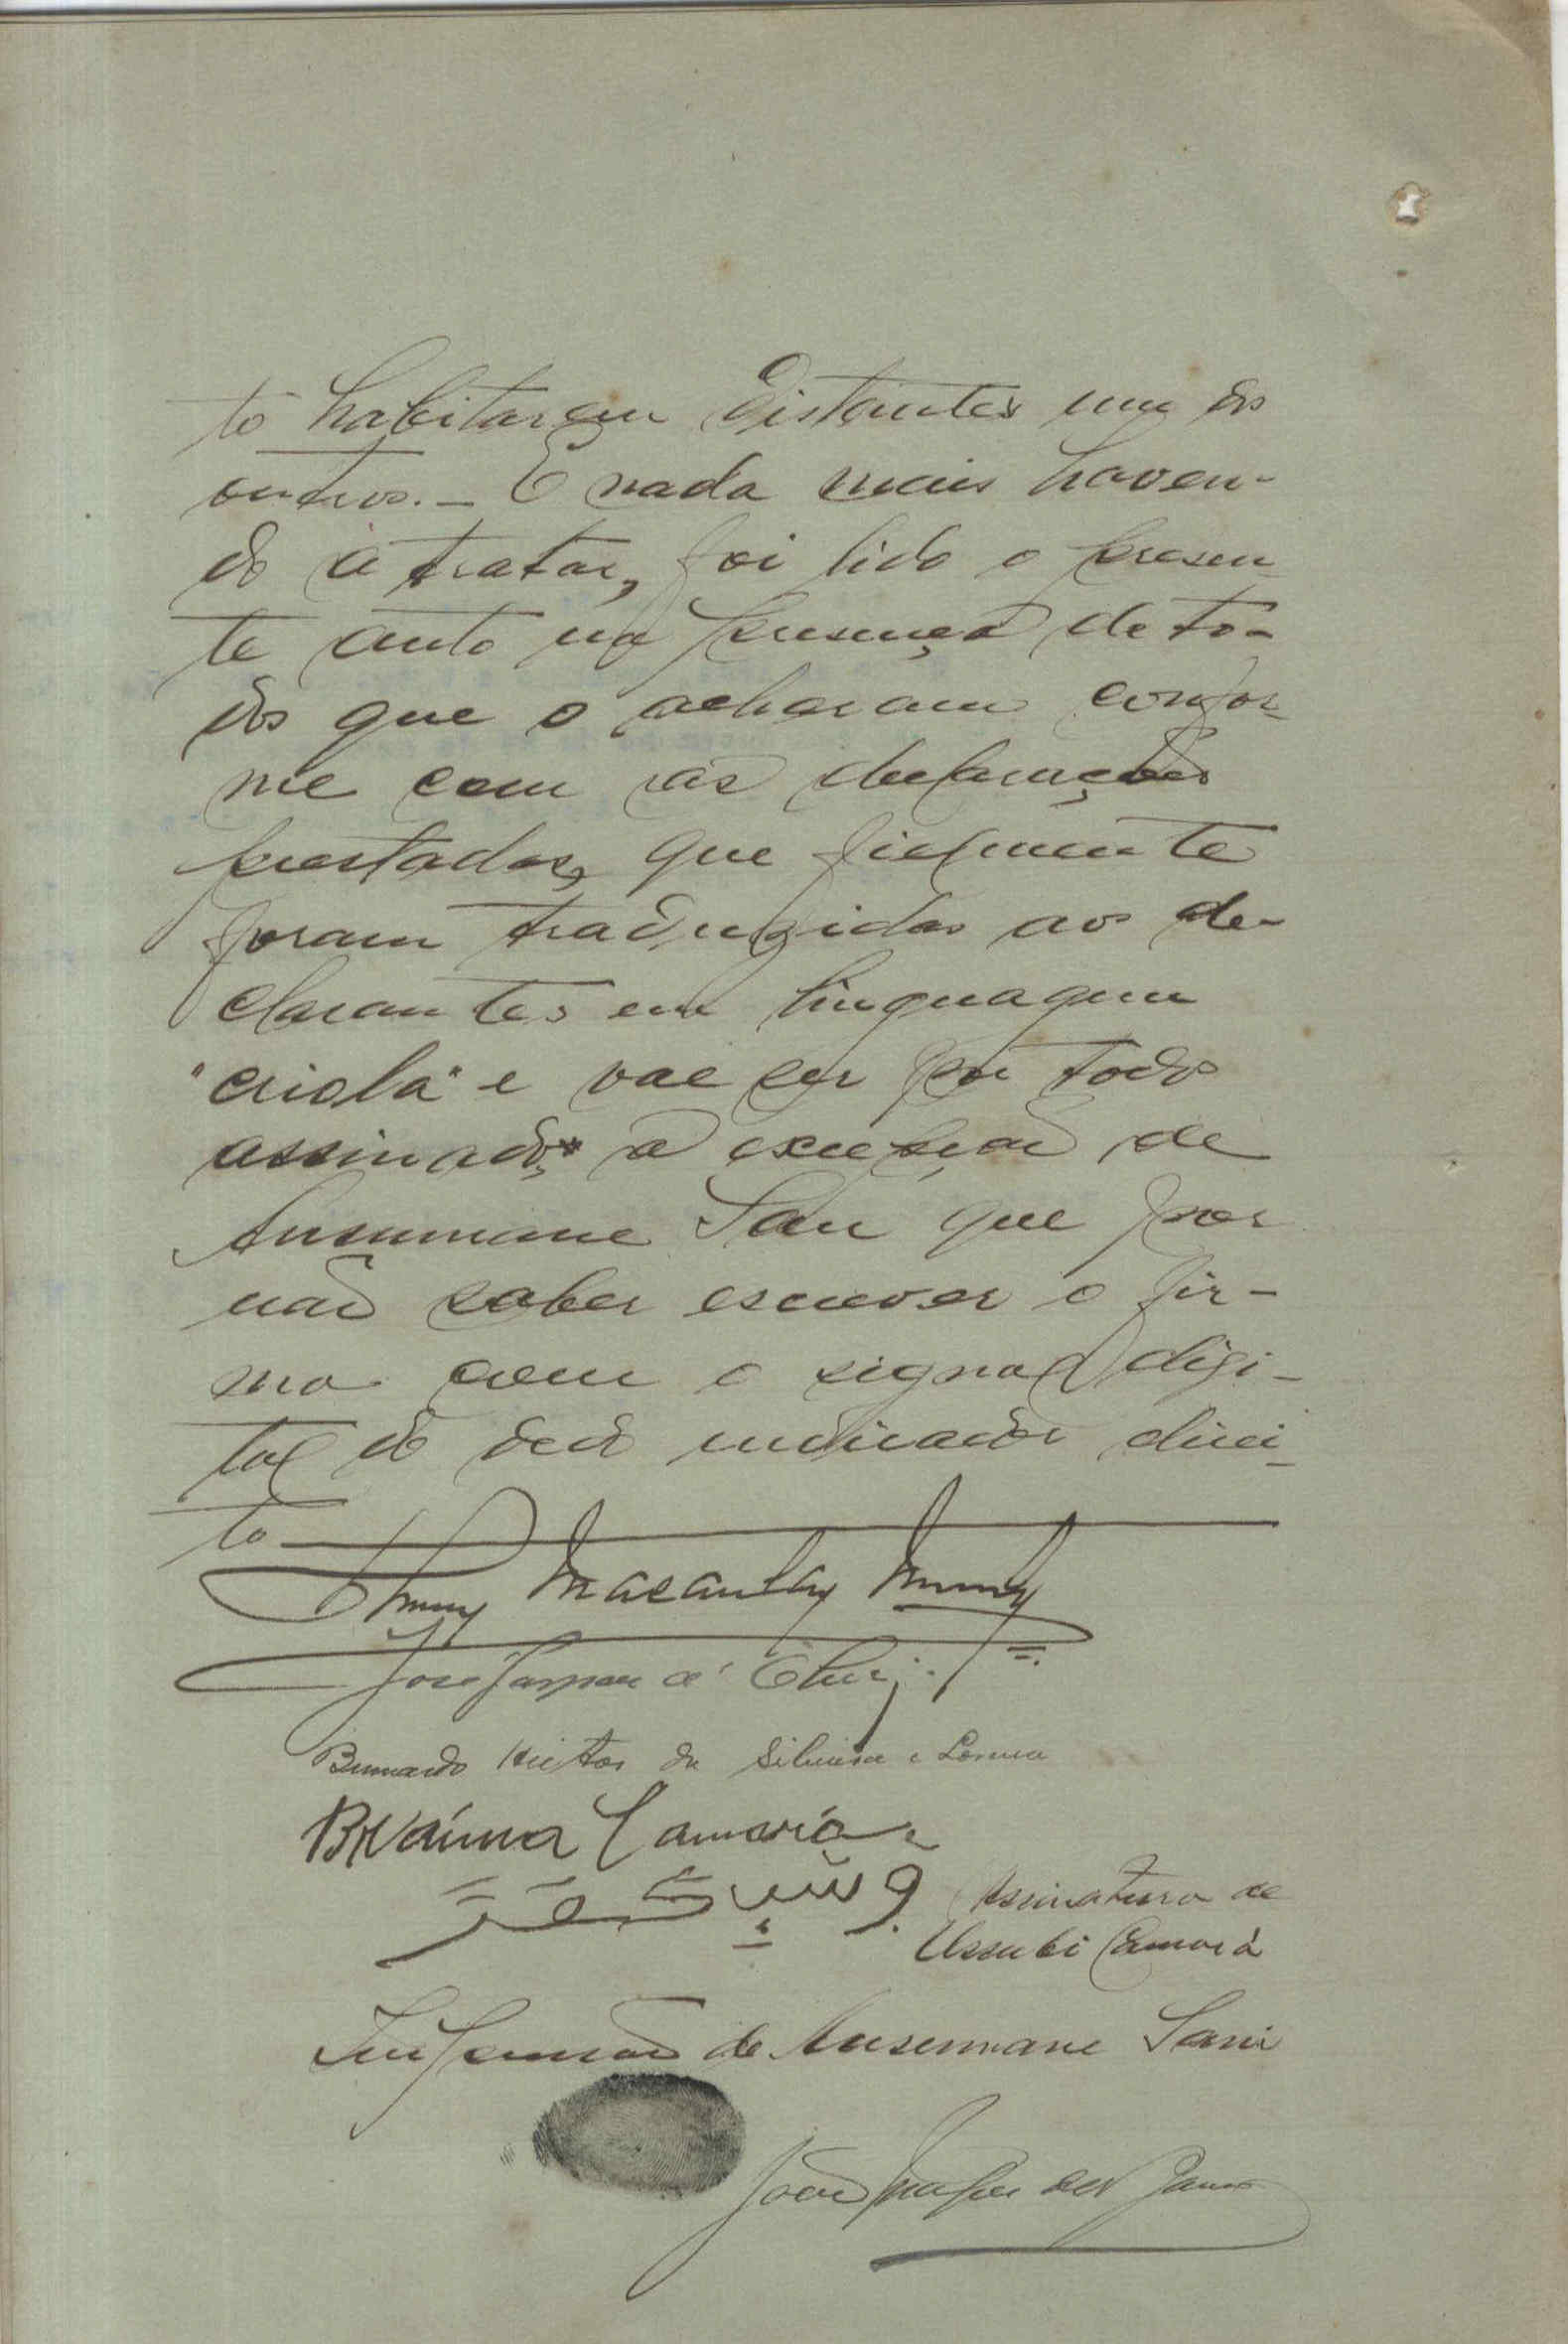 to habitarem distantes um dos
outros. — E nada mais haven-
do a tratar, foi lido o presen-
te auto na presença de to-
dos que o acharam confor-
me com as declarações
prestadas, que fielmente
foram traduzidas aos de-
clarantes em linguagem
"criola" e vae ser por todos
assinado, a excepção de
Ansumane Sani que por
não saber escrever o fir-
ma com o signal digi-
tal do dedo indicador direi-
to
Macaulay
José Gaspar
Bernardo Heitor da Silveira e Lorena
Braima Camará
Assinatura de
Ussubi Camará
Impressão de Ansumane Sani
João